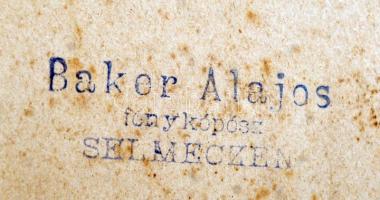 Baker Alajos
fenykópósz
SELMECZEN